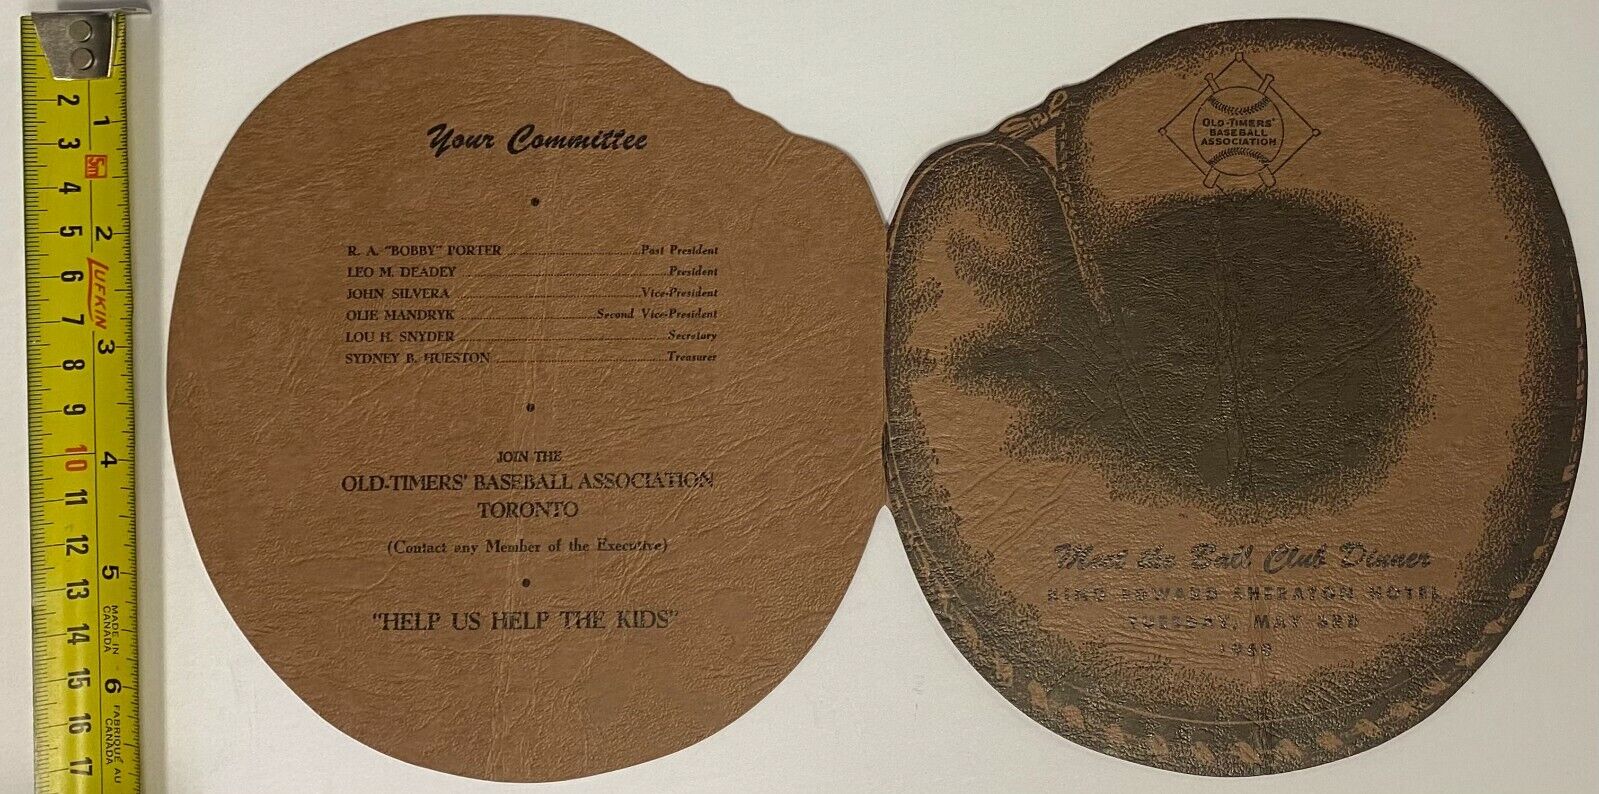 Your Committee
R. A. "BOBBY" PORTER Past President
LEO M. DEADEY President
JOHN SILVERA Vice-President
OLIE MANDRYK Second Vice-President
LOU H. SNYDER Secretary
SYDNEY B. HUESTON Treasurer
JOIN THE
OLD-TIMERS' BASEBALL ASSOCIATION
TORONTO
(Contact any Member of the Executive)
"HELP US HELP THE KIDS"
OLD-TIMERS'
BASEBALL
ASSOCIATION
Meet the Ball Club Dinner
KING EDWARD SHERATON HOTEL
TUESDAY, MAY 3RD
2 3 4 5 6 7 8 9 10 11 12 13 14 15 16 17
1 2 3 4 5 6
5m
LUFKIN
MADE IN
CANADA
FABRIQUÉ AU
CANADA